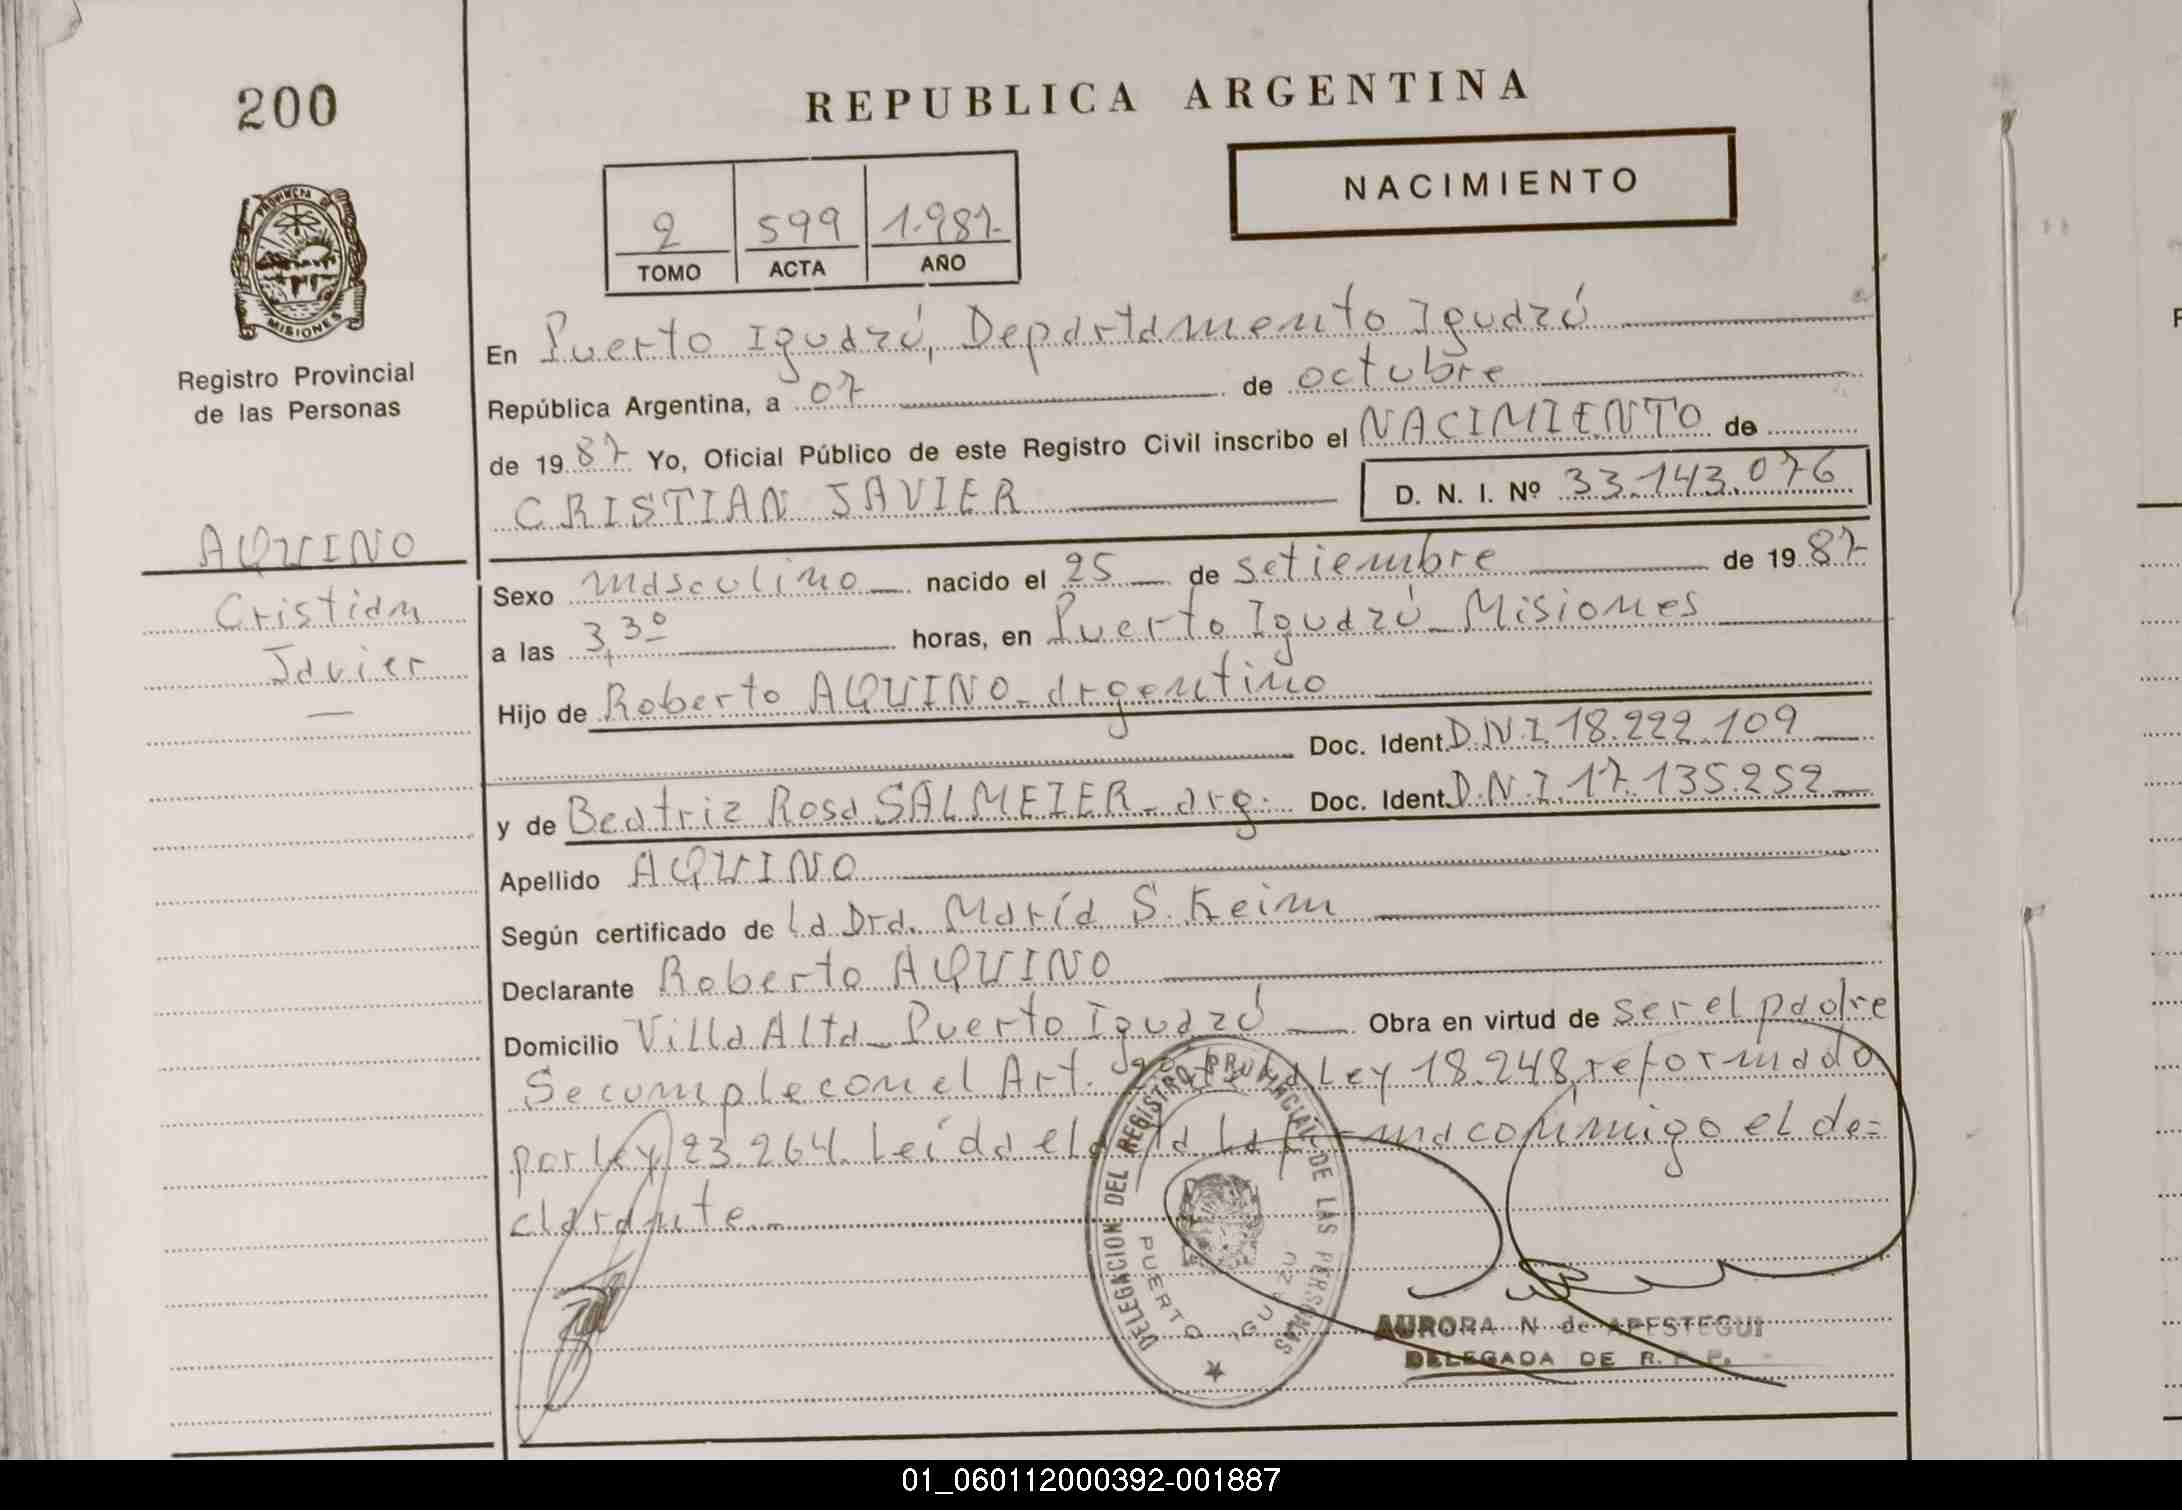 200
REPUBLICA ARGENTINA
NACIMIENTO
2 599 1.987
TOMO ACTA AÑO
PROVINCIA DE
MISIONES
Registro Provincial
de las Personas
AQUINO
Cristian
Javier
En Puerto Iguazú, Departamento Iguazú
República Argentina, a 07 de octubre
de 1987 Yo, Oficial Público de este Registro Civil inscribo el NACIMIENTO de
CRISTIAN JAVIER D. N. I. Nº 33.143.076
Sexo masculino nacido el 25 de setiembre de 1987
a las 3,30 horas, en Puerto Iguazú - Misiones
Hijo de Roberto AQUINO - argentino
Doc. Ident. D.N.I. 18.222.109
y de Beatriz Rosa SALMEIER - arg. Doc. Ident. D.N.I. 17.135.252
Apellido AQUINO
Según certificado de la Dra. María S. Keim
Declarante Roberto AQUINO
Domicilio Villa Alta - Puerto Iguazú Obra en virtud de ser el padre
Se cumple con el Art. Ley 18.248, reformado
por Ley 23.264. Leída el acta la firma conmigo el de=
clarante.-
DELEGACION DEL REGISTRO PROVINCIAL DE LAS PERSONAS
PUERTO IGUAZU
AURORA N de APESTEGUI
DELEGADA DE R. P. P.
01_060112000392-001887